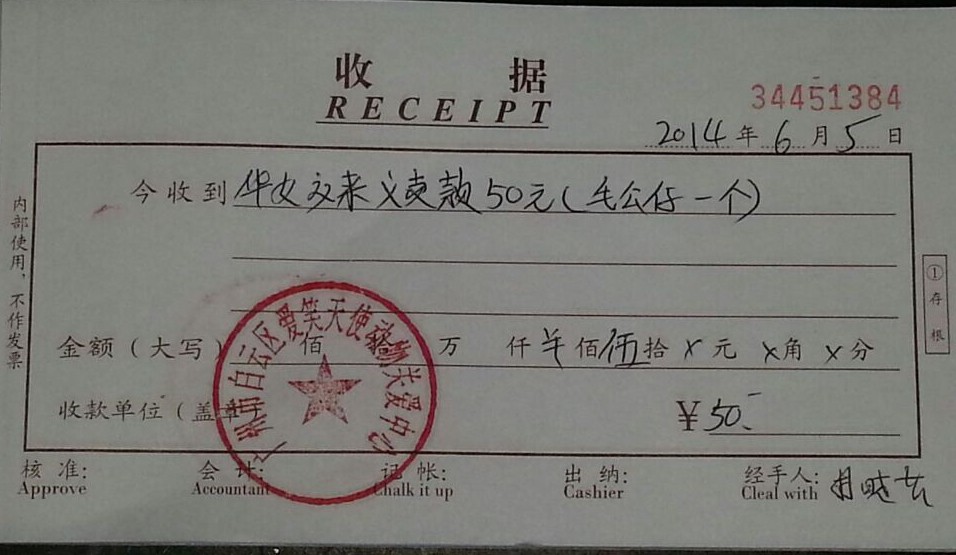 收 据
RECEIPT
34451384
2014 年 6 月 5 日
今收到 华女 义卖款50元(毛公仔一个)
内部使用,不作发票
①存根
金额(大写) 佰 万 仟 佰 伍 拾 × 元 × 角 × 分
广州市白云区爱笑天使动物关爱中心
收款单位(盖章)
¥50.-
核 准: 会 计: 记 帐: 出 纳: 经手人:
Approve Accountant Chalk it up Cashier Cleal with